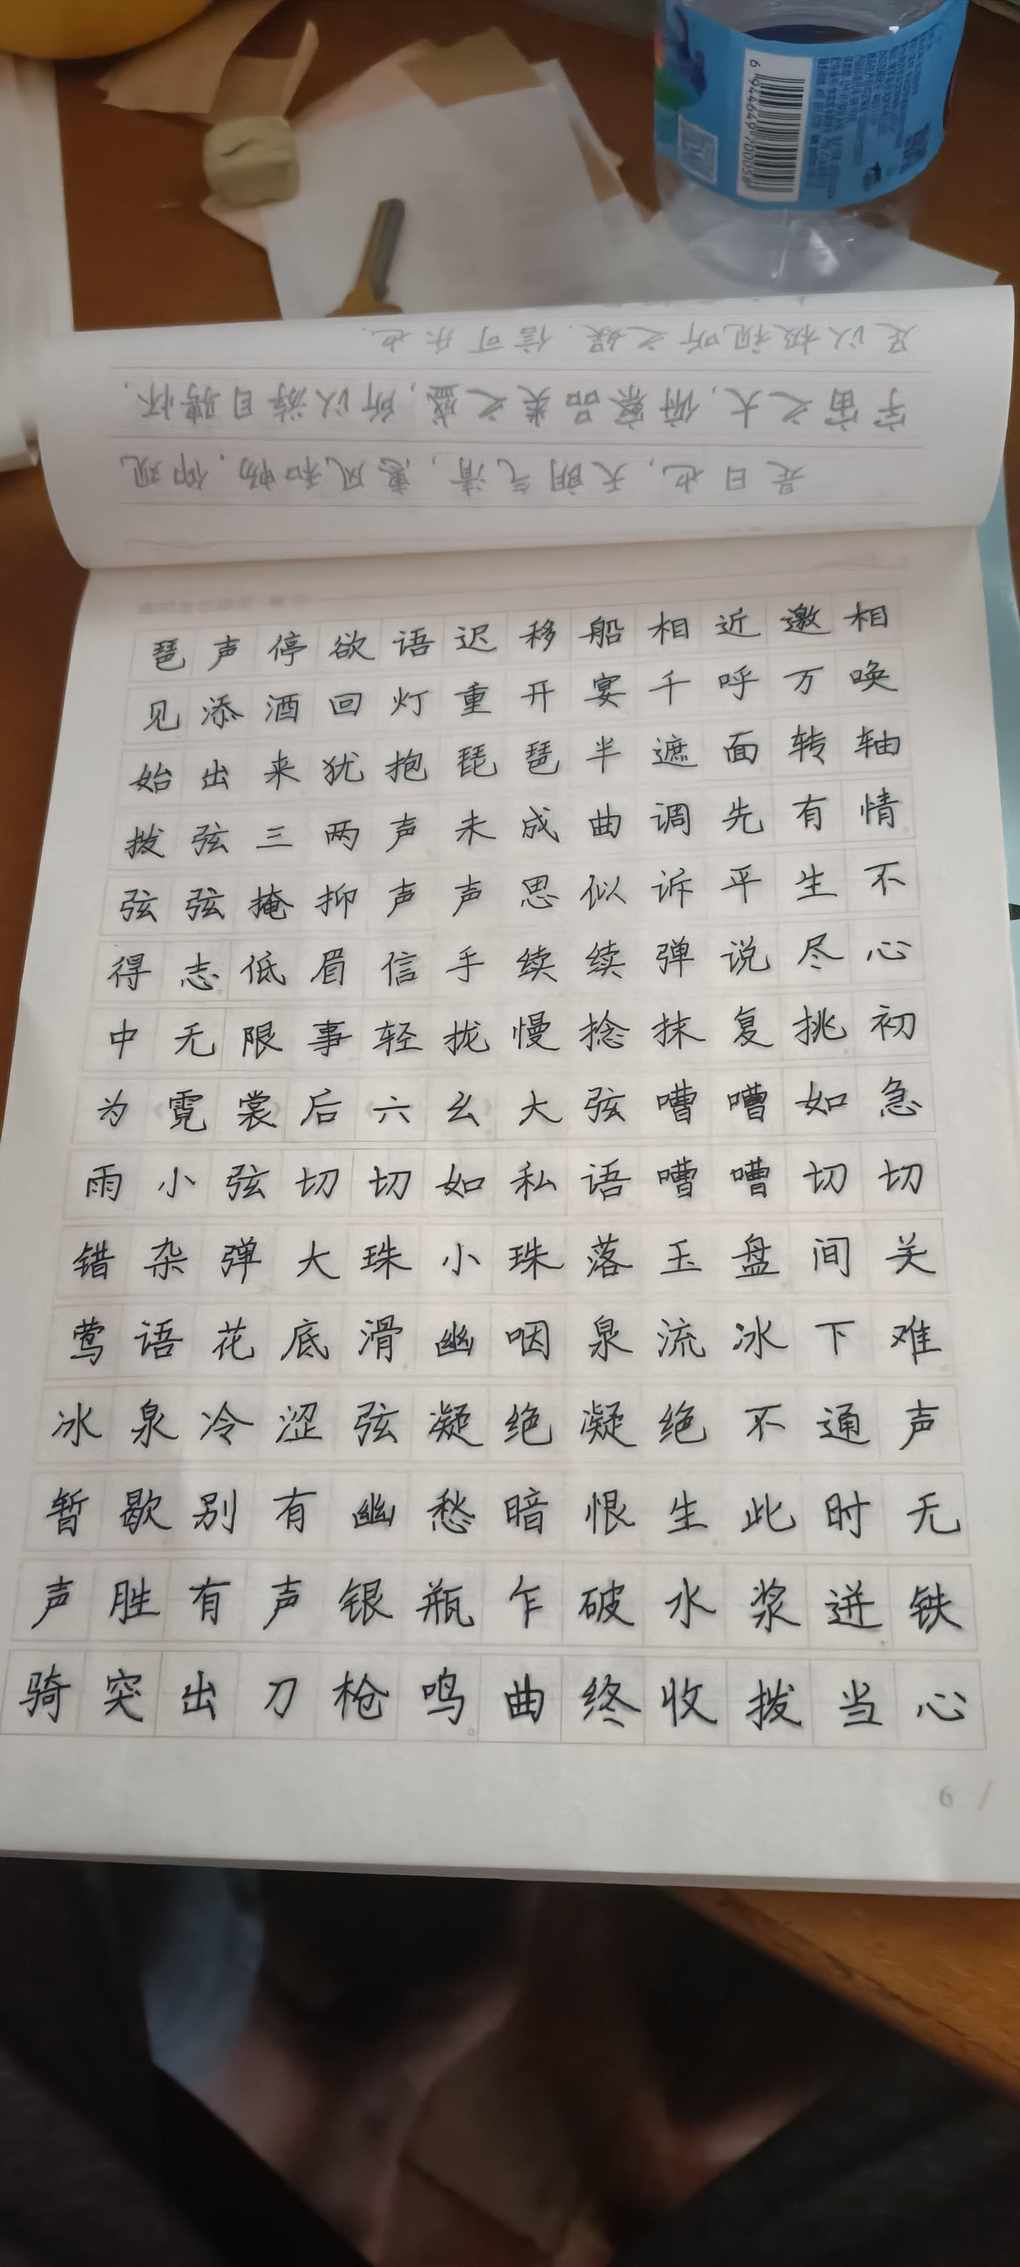 足以极视听之娱，信可乐也.
宇宙之大，俯察品类之盛，所以游目骋怀，
是日也，天朗气清，惠风和畅，仰观
琶声停欲语迟移船相近邀相
见添酒回灯重开宴千呼万唤
始出来犹抱琵琶半遮面转轴
拨弦三两声未成曲调先有情
弦弦掩抑声声思似诉平生不
得志低眉信手续续弹说尽心
中无限事轻拢慢捻抹复挑初
为霓裳后六幺大弦嘈嘈如急
雨小弦切切如私语嘈嘈切切
错杂弹大珠小珠落玉盘间关
莺语花底滑幽咽泉流冰下难
冰泉冷涩弦凝绝凝绝不通声
暂歇别有幽愁暗恨生此时无
声胜有声银瓶乍破水浆迸铁
骑突出刀枪鸣曲终收拨当心
6